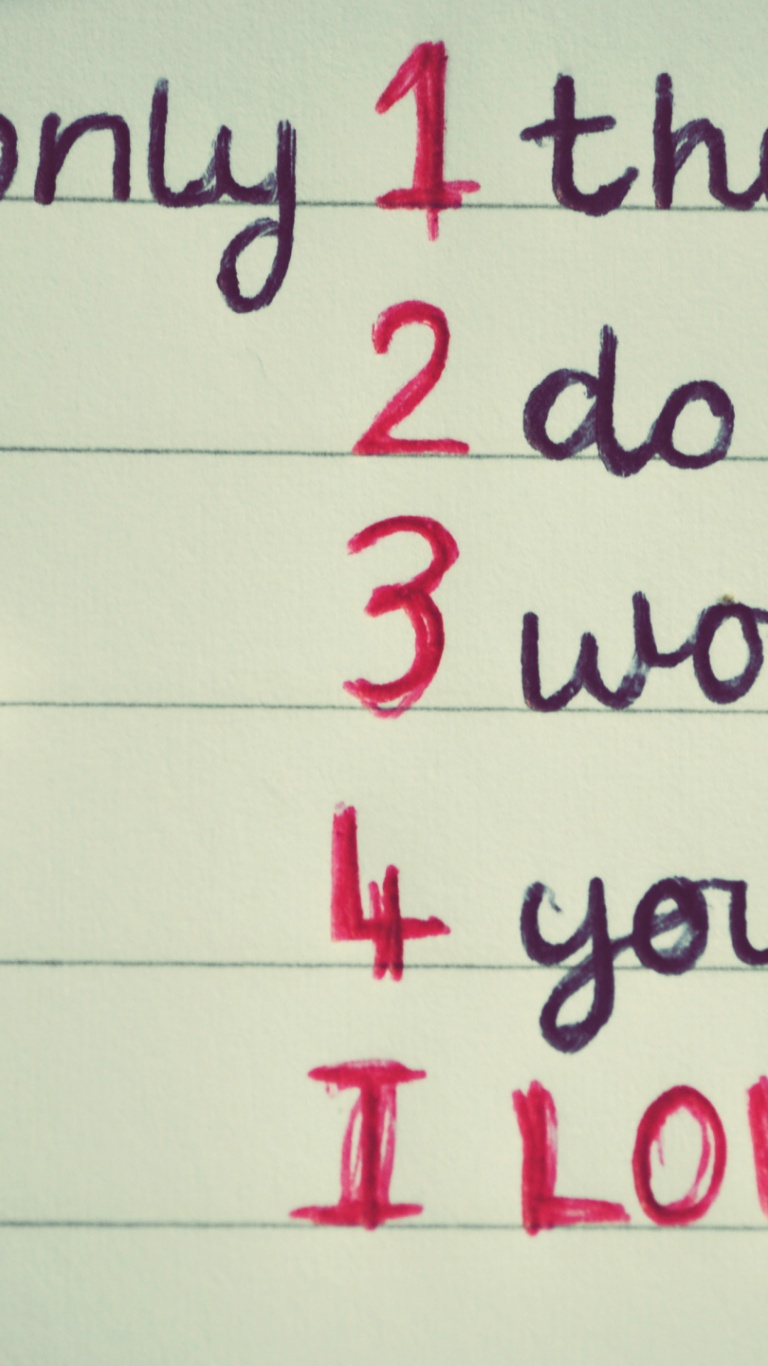 only 1 th
2 do
3 wo
4 you
I LO